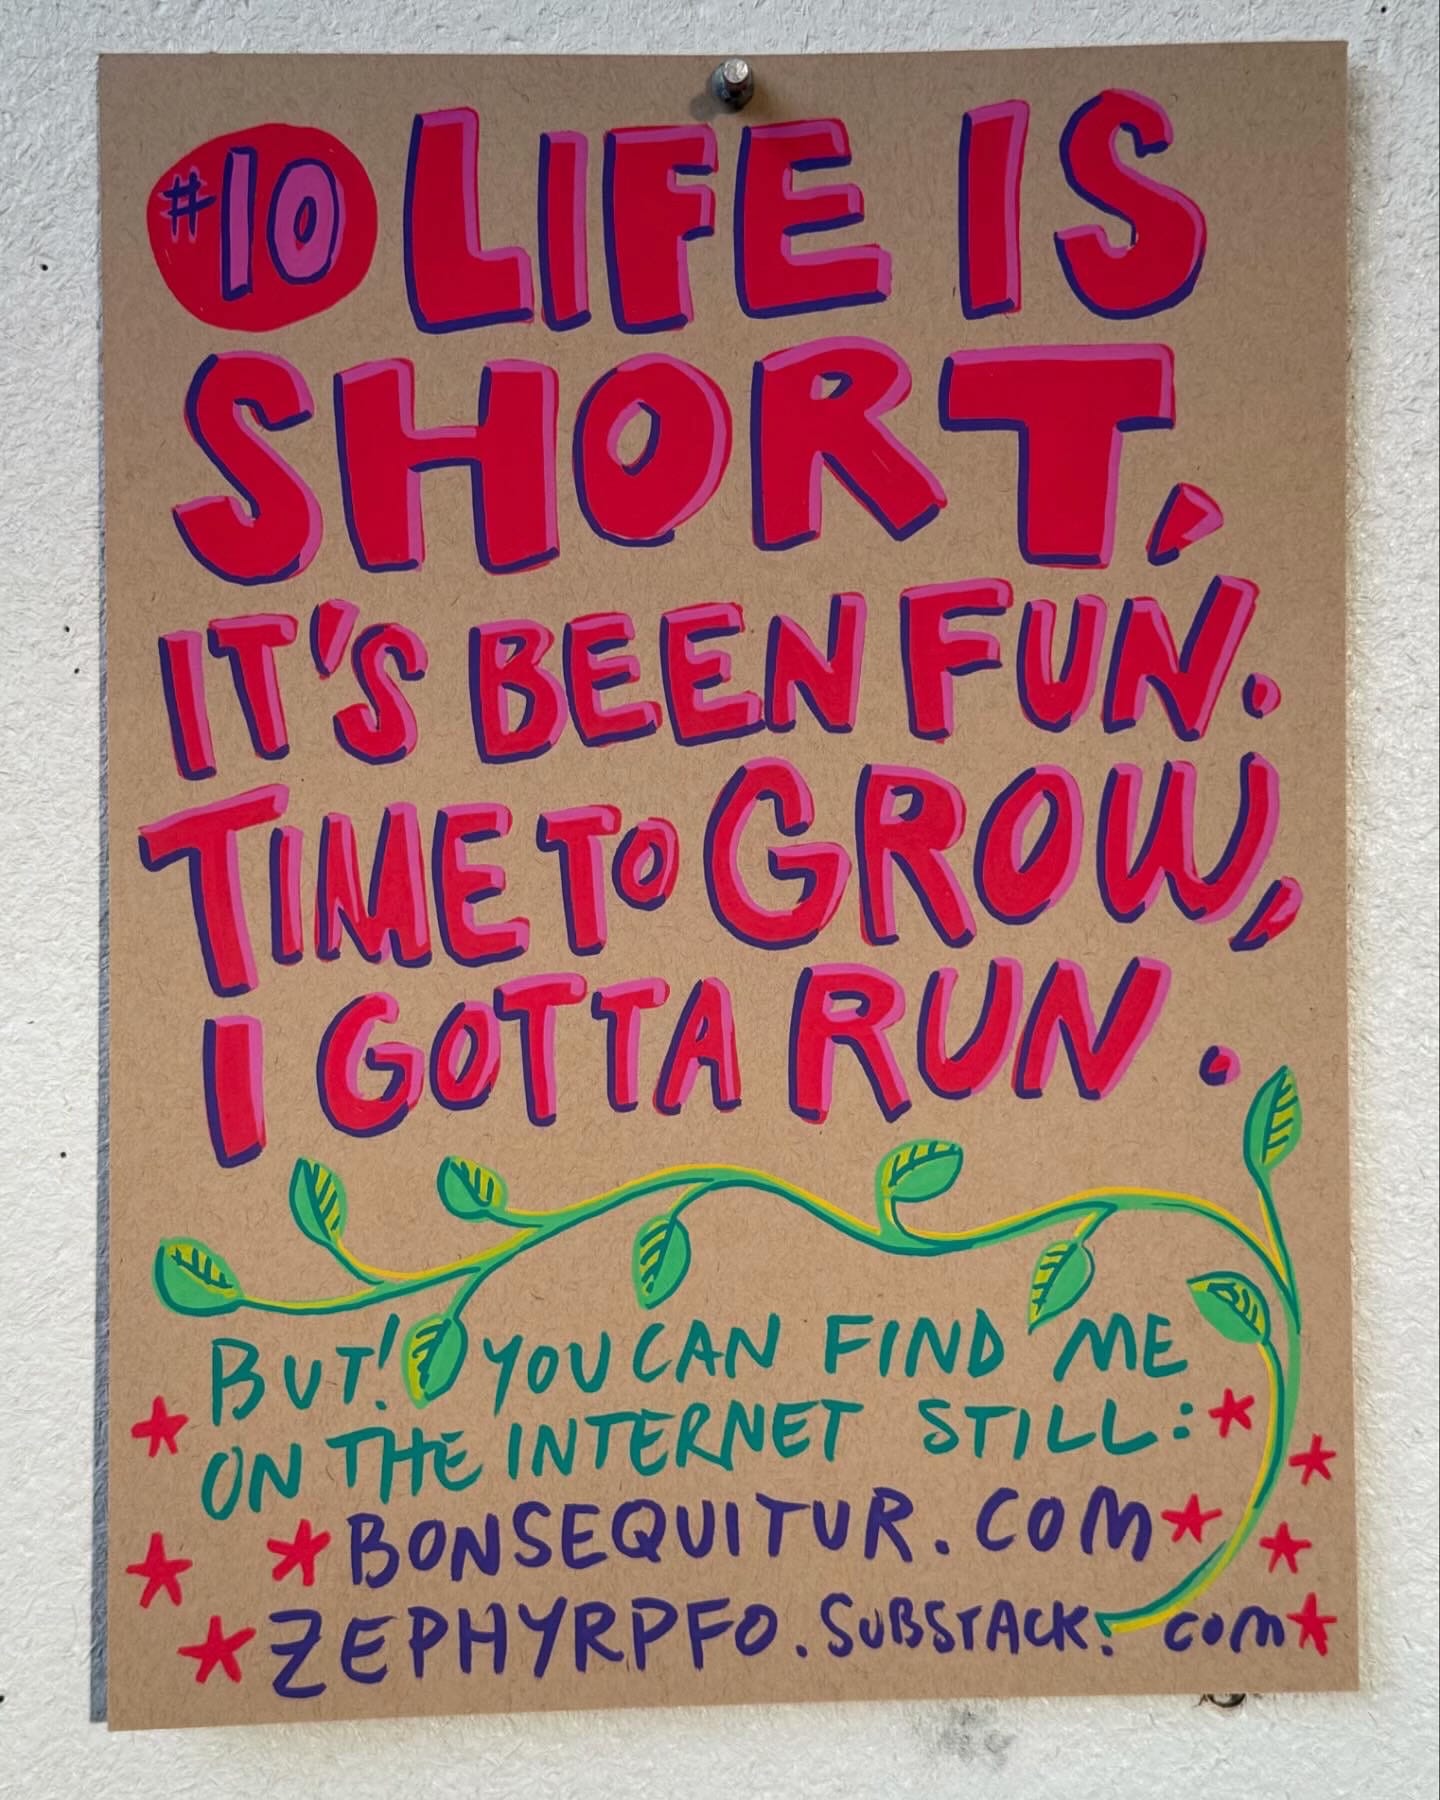 #10 LIFE IS
SHORT,
IT'S BEEN FUN.
TIME TO GROW,
I GOTTA RUN.
BUT! YOU CAN FIND ME
ON THE INTERNET STILL:
BONSEQUITUR.COM
ZEPHYRPFO.SUBSTACK.COM